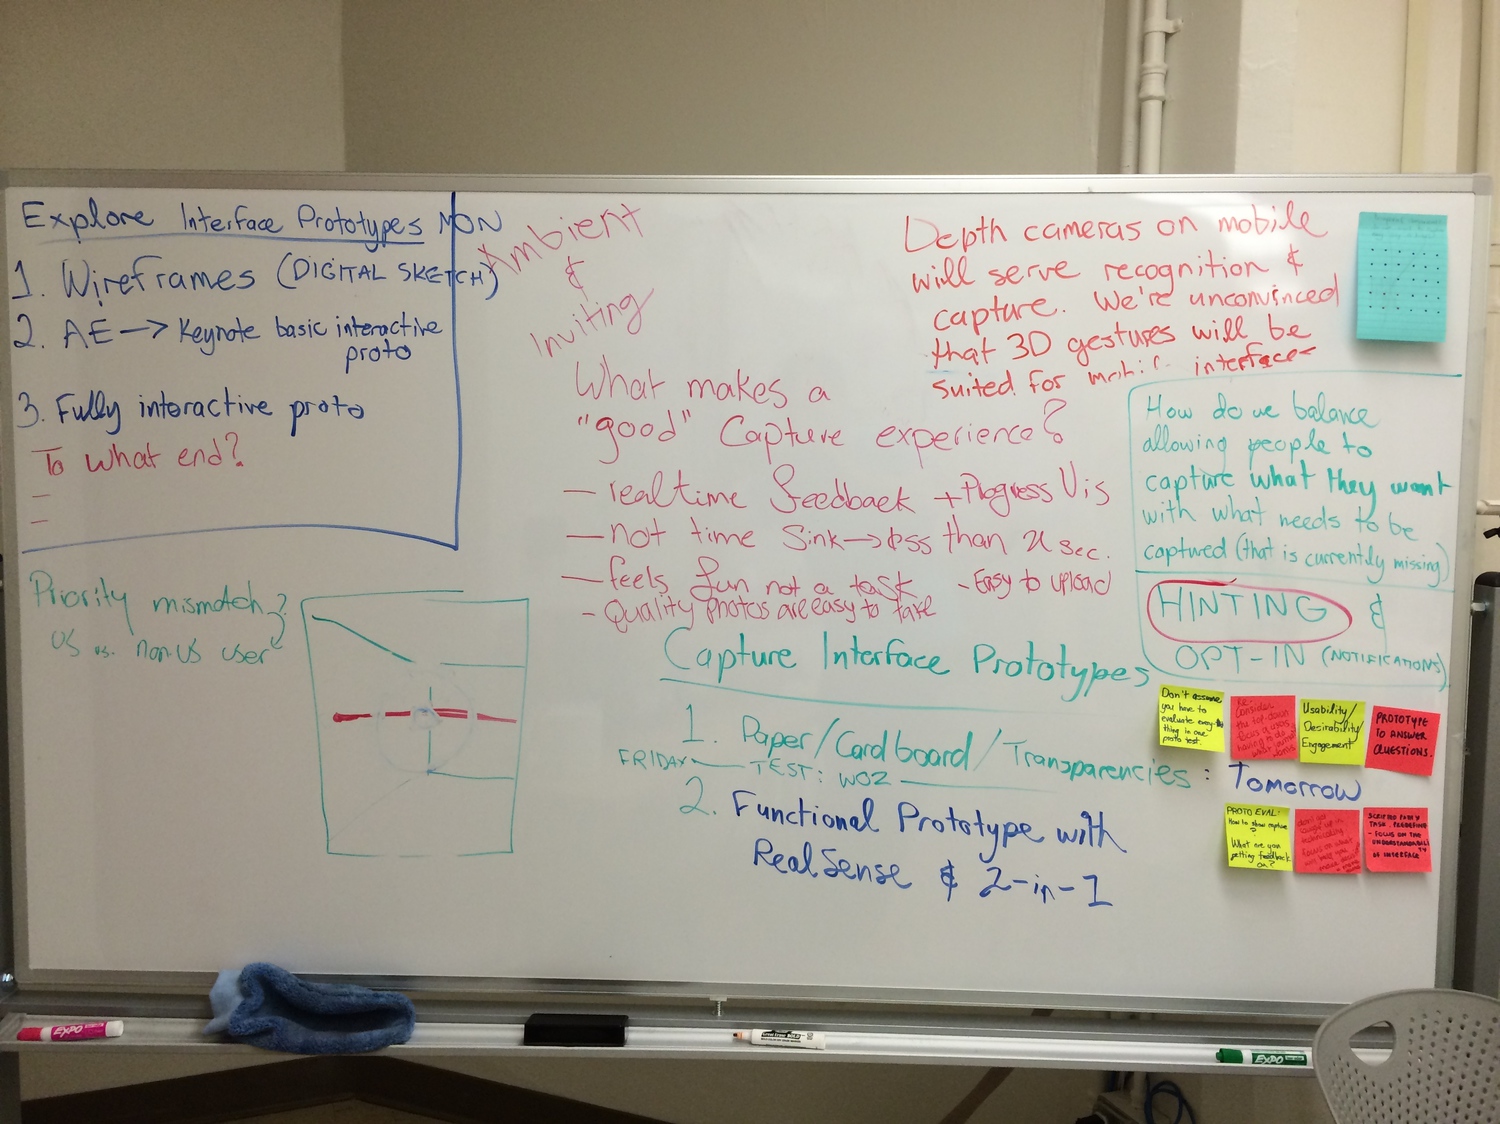 Explore Interface Prototypes MON
1. Wireframes (DIGITAL SKETCH)
2. AE —> Keynote basic interactive
proto
3. Fully interactive proto
To what end?
–
–
Ambient
&
Inviting
Depth cameras on mobile
will serve recognition &
capture. We're unconvinced
that 3D gestures will be
suited for interfaces
What makes a
"good" Capture experience?
– realtime feedback + Progress Vis
– not time sink —> less than x sec.
– feels fun not a task - Easy to upload
– Quality photos are easy to take
How do we balance
allowing people to
capture what they want
with what needs to be
captured (that is currently missing)
HINTING &
OPT-IN (NOTIFICATIONS)
Priority mismatch?
US vs. non US user
Capture Interface Prototypes
1. Paper/Cardboard/Transparencies : Tomorrow
FRIDAY — TEST: WOZ —
2. Functional Prototype with
RealSense & 2-in-1
Don't assume
you have to
evaluate everything
in one
proto test.
Usability/
Desirability/
Engagement
PROTOTYPE
TO ANSWER
QUESTIONS.
PROTO EVAL:
How to show capture
?
What are you
getting feedback
on?
TASK
- FOCUS ON THE
UNDERSTANDABILITY
OF INTERFACE
EXPO
EXPO